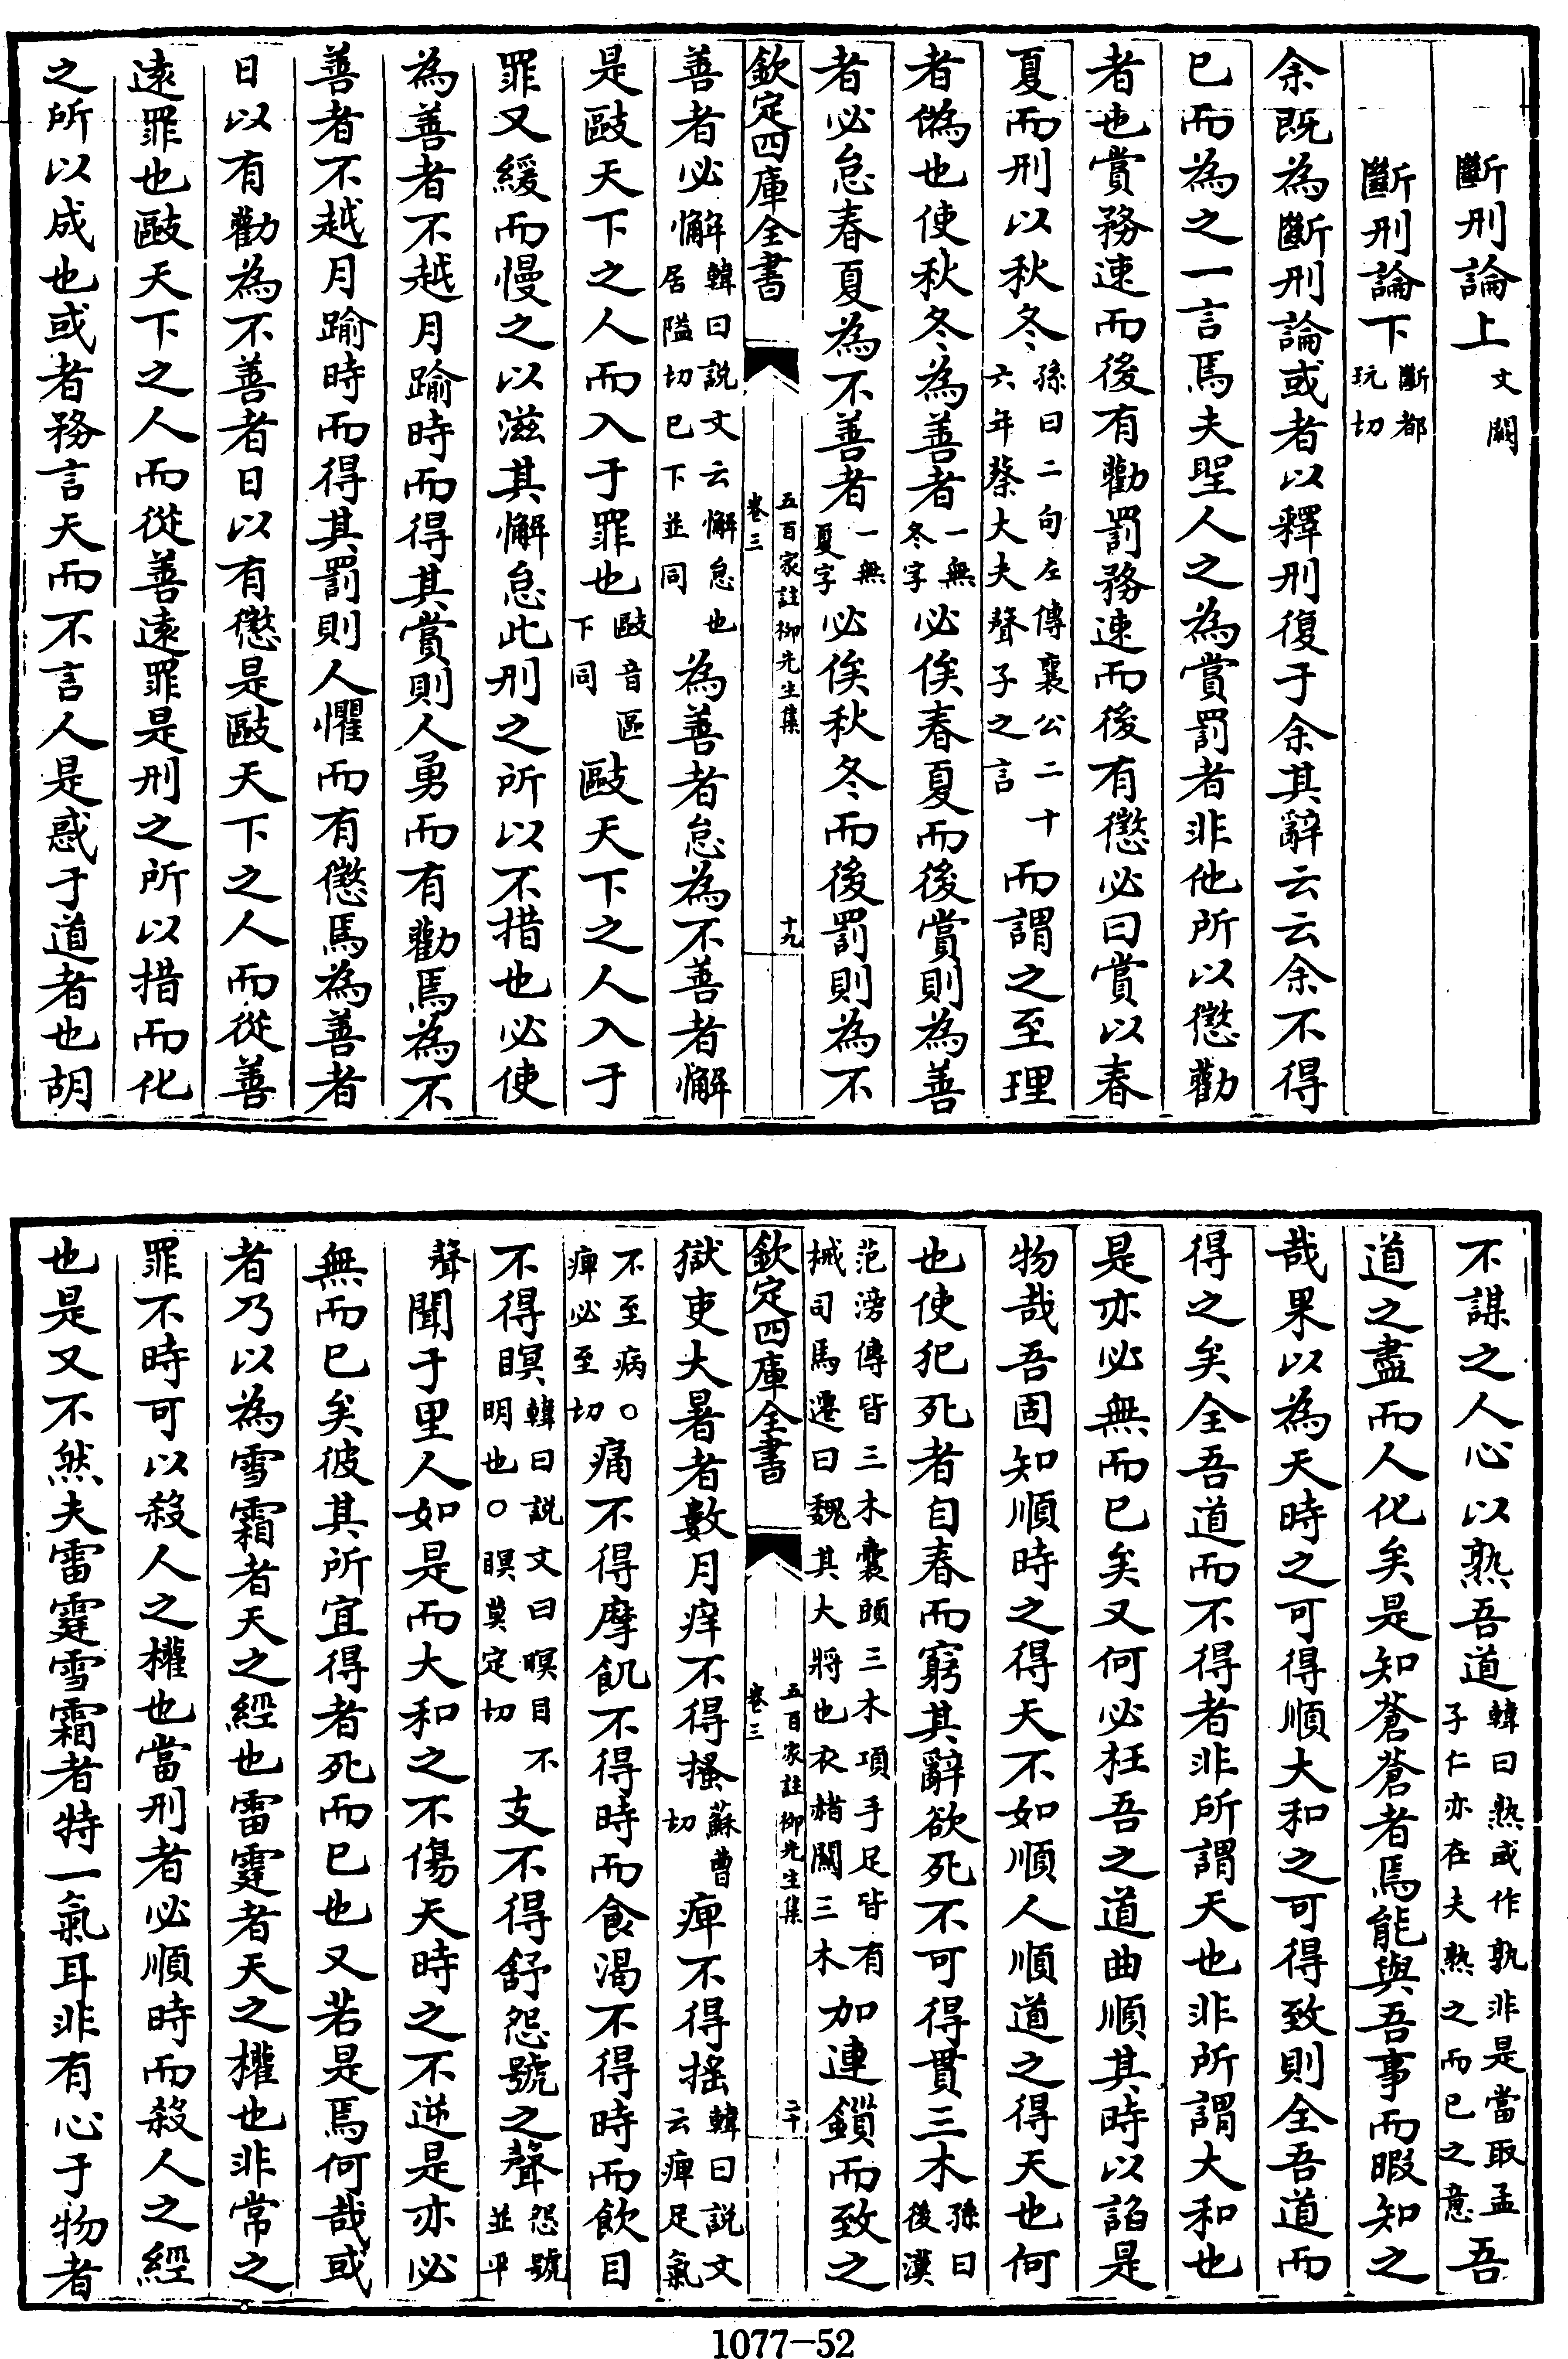 斷刑論上文闕
斷刑論下斷都玩切
余既為斷刑論或者以釋刑復于余其辭云云余不得
已而為之一言焉夫聖人之為賞罰者非他所以懲勸
者也賞務速而後有勸罰務速而後有懲必曰賞以春
夏而刑以秋冬孫曰二句左傳襄公二十六年蔡大夫聲子之言而謂之至理
者偽也使秋冬為善者一無冬字必俟春夏而後賞則為善
者必怠春夏為不善者一無夏字必俟秋冬而後罰則為不
欽定四庫全書 五百家註柳先生集 卷三 十九
善者必懈韓曰説文云懈怠也居隘切已下並同為善者怠為不善者懈
是敺天下之人而入于罪也敺音區下同敺天下之人入于
罪又緩而慢之以滋其懈怠此刑之所以不措也必使
為善者不越月踰時而得其賞則人勇而有勸焉為不
善者不越月踰時而得其罰則人懼而有懲焉為善者
日以有勸為不善者日以有懲是敺天下之人而從善
遠罪也敺天下之人而從善遠罪是刑之所以措而化
之所以成也或者務言天而不言人是惑于道者也胡
不謀之人心以熟吾道韓曰熟或作孰非是當取孟子仁亦在夫熟之而已之意吾
道之盡而人化矣是知蒼蒼者焉能與吾事而暇知之
哉果以為天時之可得順大和之可得致則全吾道而
得之矣全吾道而不得者非所謂天也非所謂大和也
是亦必無而已矣又何必枉吾之道曲順其時以諂是
物哉吾固知順時之得天不如順人順道之得天也何
也使犯死者自春而窮其辭欲死不可得貫三木孫曰後漢
范滂傳皆三木囊頭三木項手足皆有械司馬遷曰魏其大將也衣赭關三木加連鎖而致之
欽定四庫全書 五百家註柳先生集 卷三 二十
獄吏大暑者數月痒不得搔蘇曹切痺不得搖韓曰説文云痺足氣
不至病○痺必至切痛不得摩飢不得時而食渴不得時而飲目
不得瞑韓曰説文曰瞑目不明也○瞑莫定切支不得舒怨號之聲怨號並平
聲聞于里人如是而大和之不傷天時之不逆是亦必
無而已矣彼其所宜得者死而已也又若是焉何哉或
者乃以為雪霜者天之經也雷霆者天之權也非常之
罪不時可以殺人之權也當刑者必順時而殺人之經
也是又不然夫雷霆雪霜者特一氣耳非有心于物者
1077-52